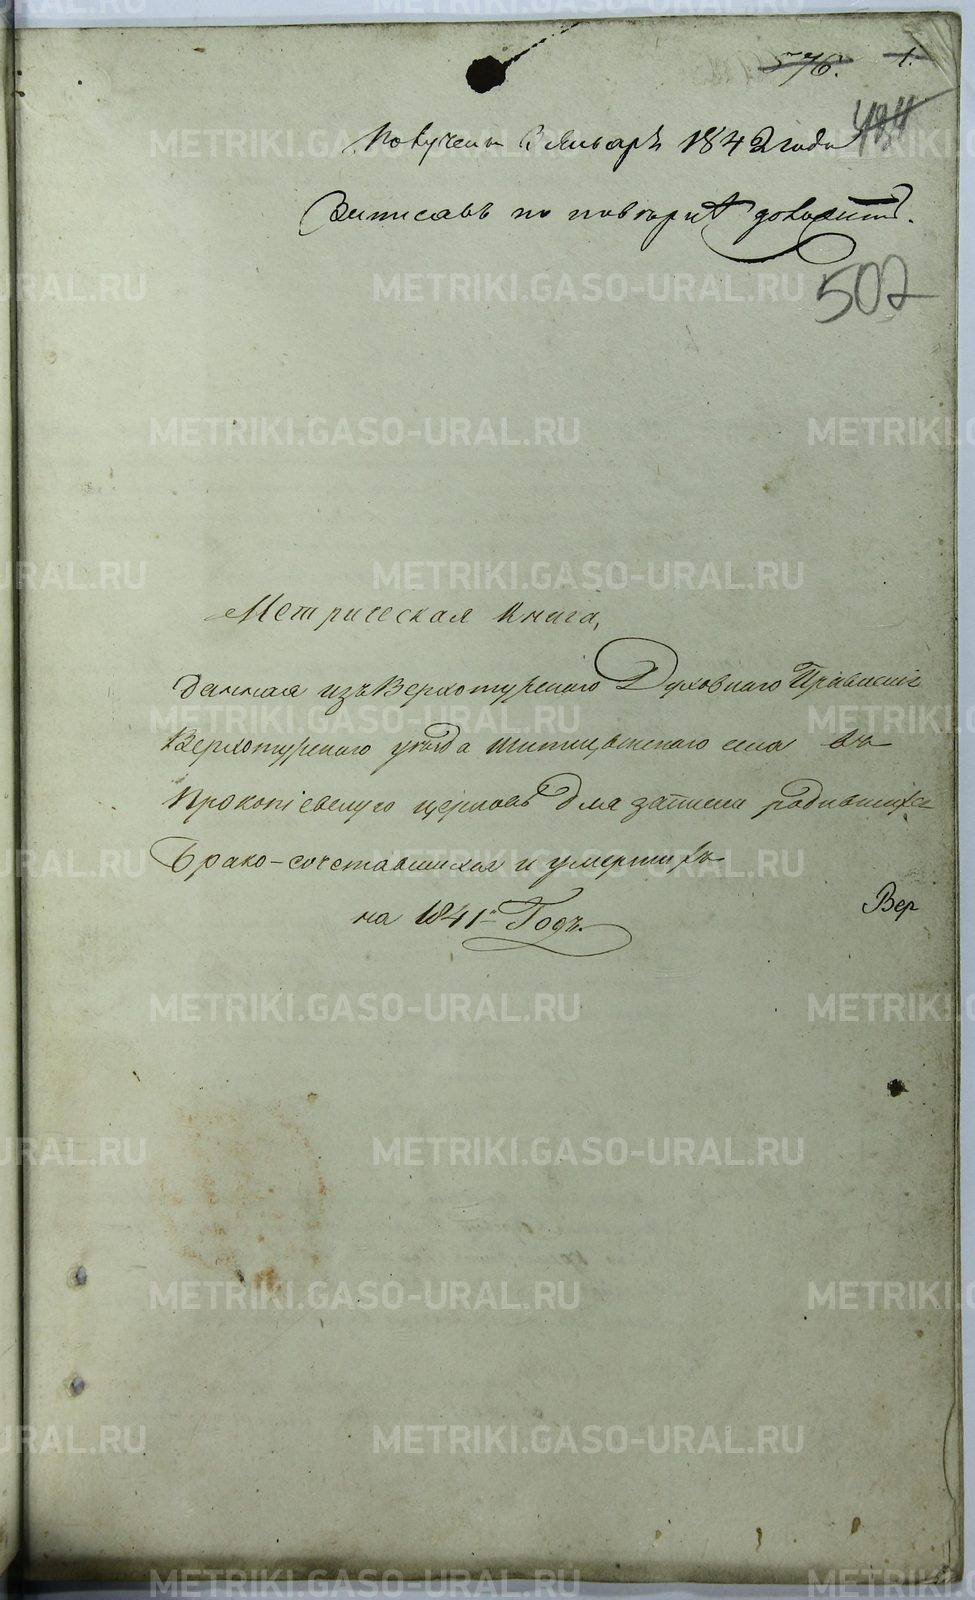 576. 1.
494
Получена 6 Января 1842 года
502
Метрическая книга,
данная изъ Верхотурскаго Духовнаго Правленія
Верхотурскаго уѣзда села въ
Прокопіевскую церковь для записи родившихся
Брако-сочетавшихся и умершихъ
на 1841й Годъ.
Вер
METRIKI.GASO-URAL.RU